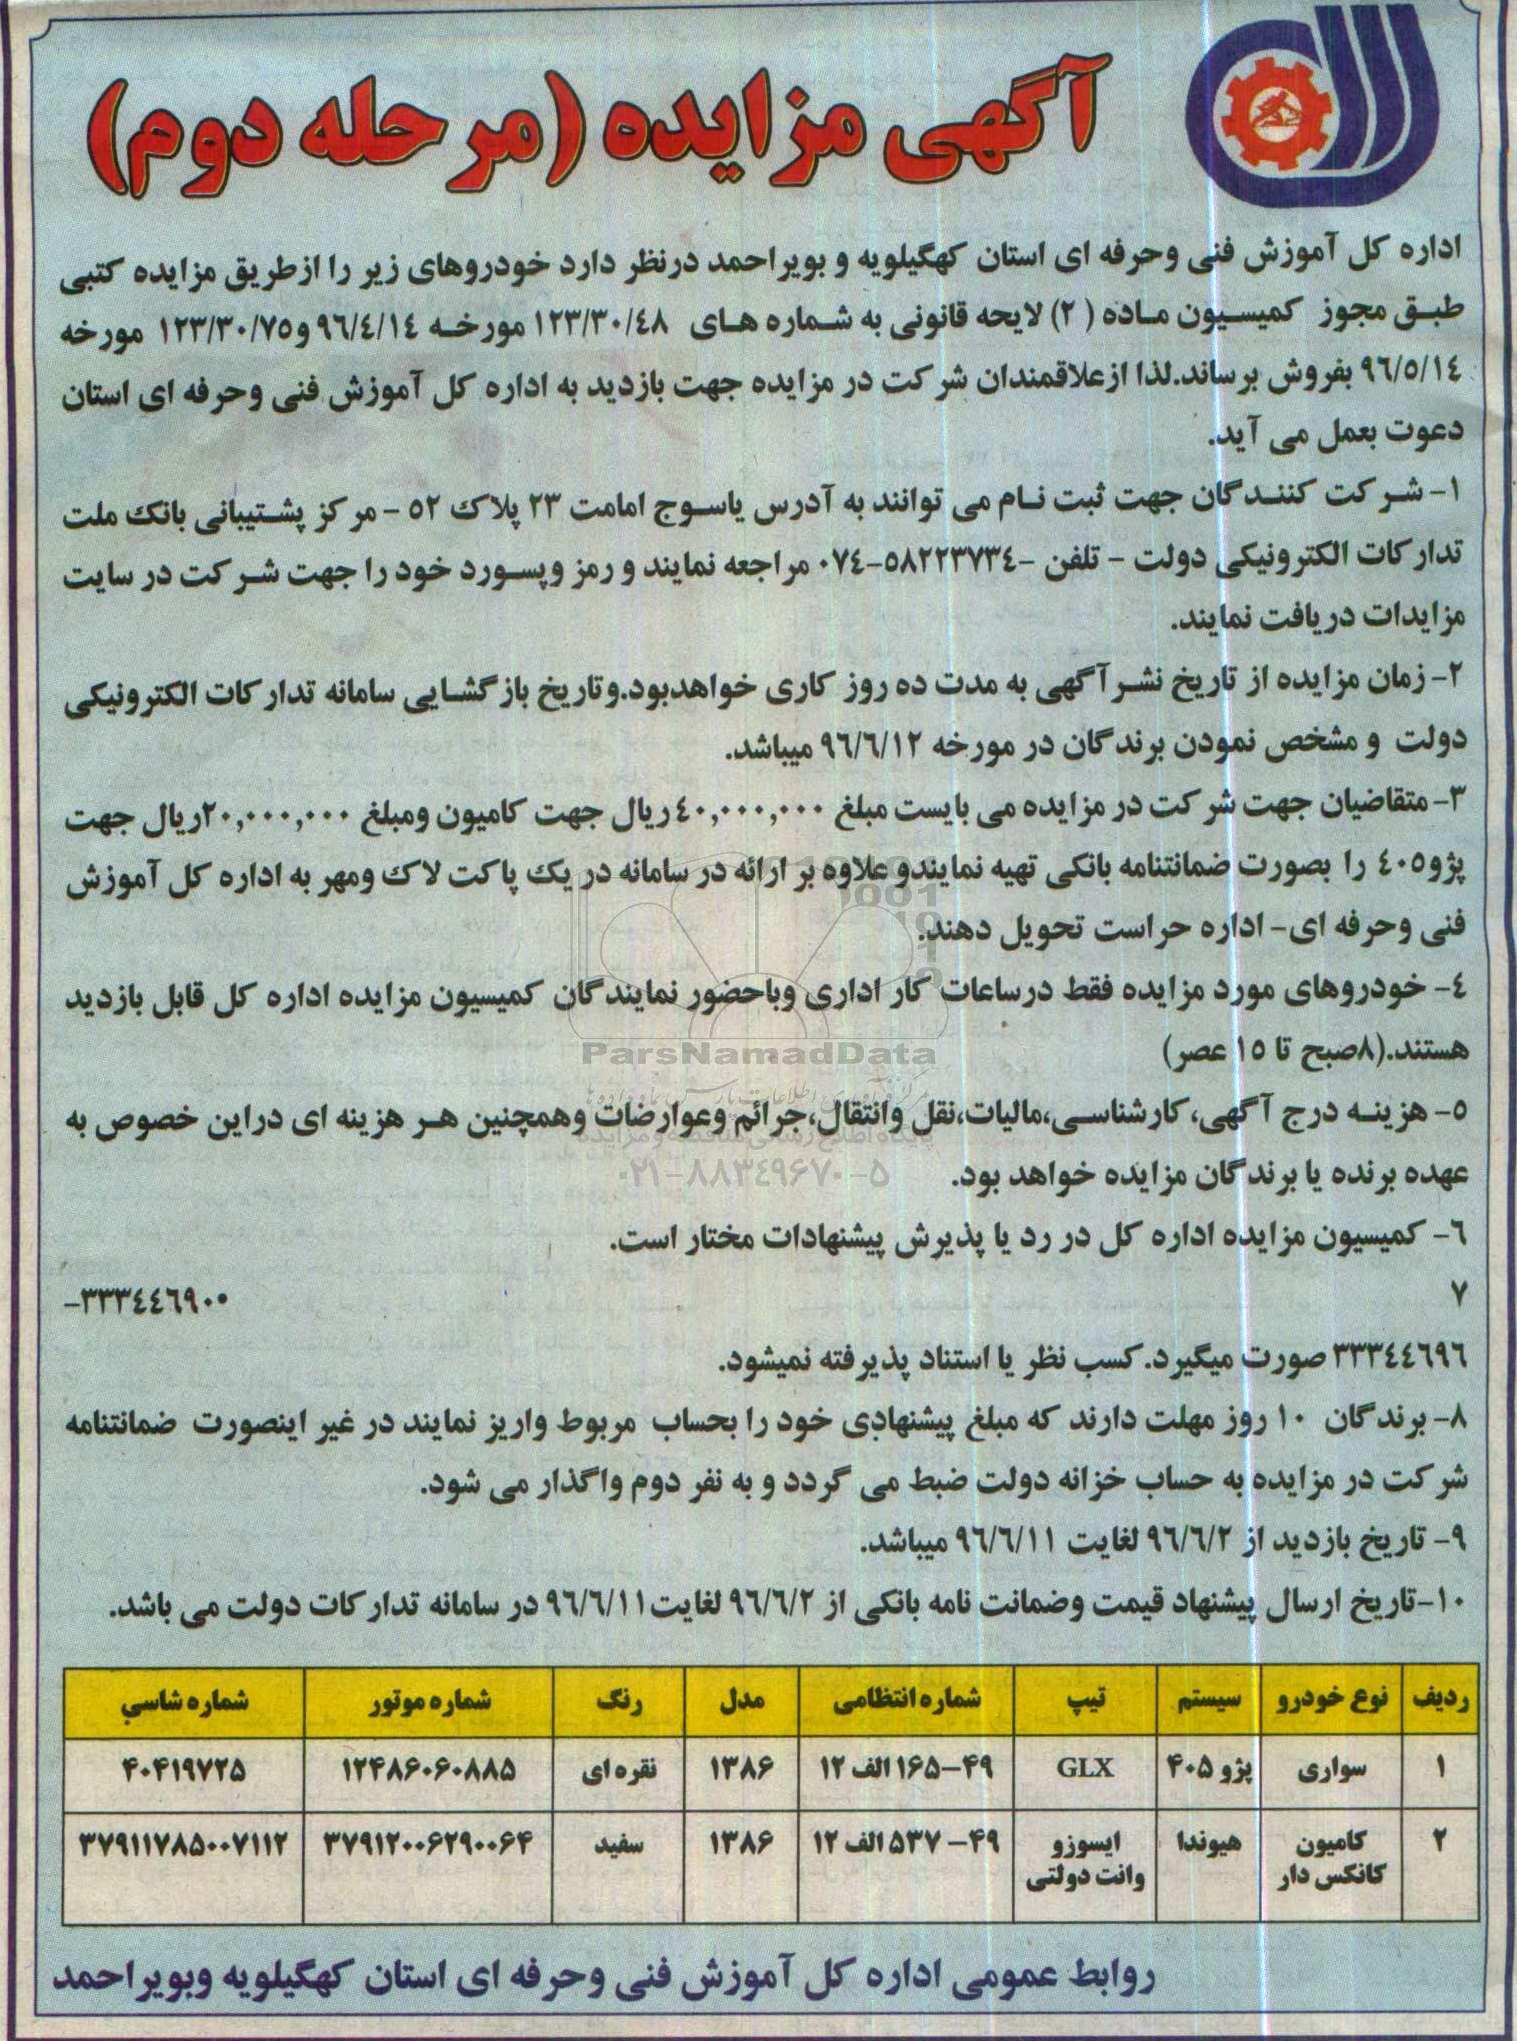 آگهی مزایده (مرحله دوم)
اداره کل آموزش فنی وحرفه ای استان کهگیلویه و بویراحمد درنظر دارد خودروهای زیر را ازطریق مزایده کتبی
طبق مجوز کمیسیون ماده ( ۲) لایحه قانونی به شماره های ۱۲۳/۳۰/٤۸ مورخه ۹٦/٤/۱٤ و۱۲۳/۳۰/۷٥ مورخه
۹٦/٥/۱٤ بفروش برساند.لذا ازعلاقمندان شرکت در مزایده جهت بازدید به اداره کل آموزش فنی وحرفه ای استان
دعوت بعمل می آید.
۱- شرکت کنندگان جهت ثبت نام می توانند به آدرس یاسوج امامت ۲۳ پلاک ٥۲ - مرکز پشتیبانی بانک ملت
تدارکات الکترونیکی دولت - تلفن -٥۸۲۲۳۷۳٤-۰۷٤ مراجعه نمایند و رمز وپسورد خود را جهت شرکت در سایت
مزایدات دریافت نمایند.
۲- زمان مزایده از تاریخ نشرآگهی به مدت ده روز کاری خواهدبود.وتاریخ بازگشایی سامانه تدارکات الکترونیکی
دولت و مشخص نمودن برندگان در مورخه ۹٦/٦/۱۲ میباشد.
۳- متقاضیان جهت شرکت در مزایده می بایست مبلغ ٤۰,۰۰۰,۰۰۰ریال جهت کامیون ومبلغ ۲۰,۰۰۰,۰۰۰ریال جهت
پژو٤۰٥ را بصورت ضمانتنامه بانکی تهیه نمایندو علاوه بر ارائه در سامانه در یک پاکت لاک ومهر به اداره کل آموزش
فنی وحرفه ای- اداره حراست تحویل دهند.
٤- خودروهای مورد مزایده فقط درساعات کار اداری وباحضور نمایندگان کمیسیون مزایده اداره کل قابل بازدید
هستند.(۸صبح تا ۱٥ عصر)
ParsNamadData
٥- هزینه درج آگهی، کارشناسی،مالیات،نقل وانتقال،جرائم وعوارضات وهمچنین هر هزینه ای دراین خصوص به
عهده برنده یا برندگان مزایده خواهد بود.
۰۲۱-۸۸۳۴۹۶۷۰-۵
٦- کمیسیون مزایده اداره کل در رد یا پذیرش پیشنهادات مختار است.
۷ ۳۳۳٤٤٦۹۰۰-
۳۳۳٤٤٦۹٦ صورت میگیرد.کسب نظر یا استناد پذیرفته نمیشود.
۸- برندگان ۱۰ روز مهلت دارند که مبلغ پیشنهادی خود را بحساب مربوط واریز نمایند در غیر اینصورت ضمانتنامه
شرکت در مزایده به حساب خزانه دولت ضبط می گردد و به نفر دوم واگذار می شود.
۹- تاریخ بازدید از ۹٦/٦/۲ لغایت ۹٦/٦/۱۱ میباشد.
۱۰-تاریخ ارسال پیشنهاد قیمت وضمانت نامه بانکی از ۹٦/٦/۲ لغایت۹٦/٦/۱۱ در سامانه تدارکات دولت می باشد.
ردیف نوع خودرو سیستم تیپ شماره انتظامی مدل رنگ شماره موتور شماره شاسی
۱ سواری پژو ۴۰۵ GLX ۴۹-۱۶۵ الف ۱۲ ۱۳۸۶ نقره ای ۱۲۴۸۶۰۶۰۸۸۵ ۴۰۴۱۹۷۲۵
۲ کامیون کانکس دار هیوندا ایسوزو وانت دولتی ۴۹-۵۳۷ الف ۱۲ ۱۳۸۶ سفید ۳۷۹۱۲۰۰۶۲۹۰۰۶۴ ۳۷۹۱۱۷۸۵۰۰۷۱۱۲
روابط عمومی اداره کل آموزش فنی وحرفه ای استان کهگیلویه وبویراحمد